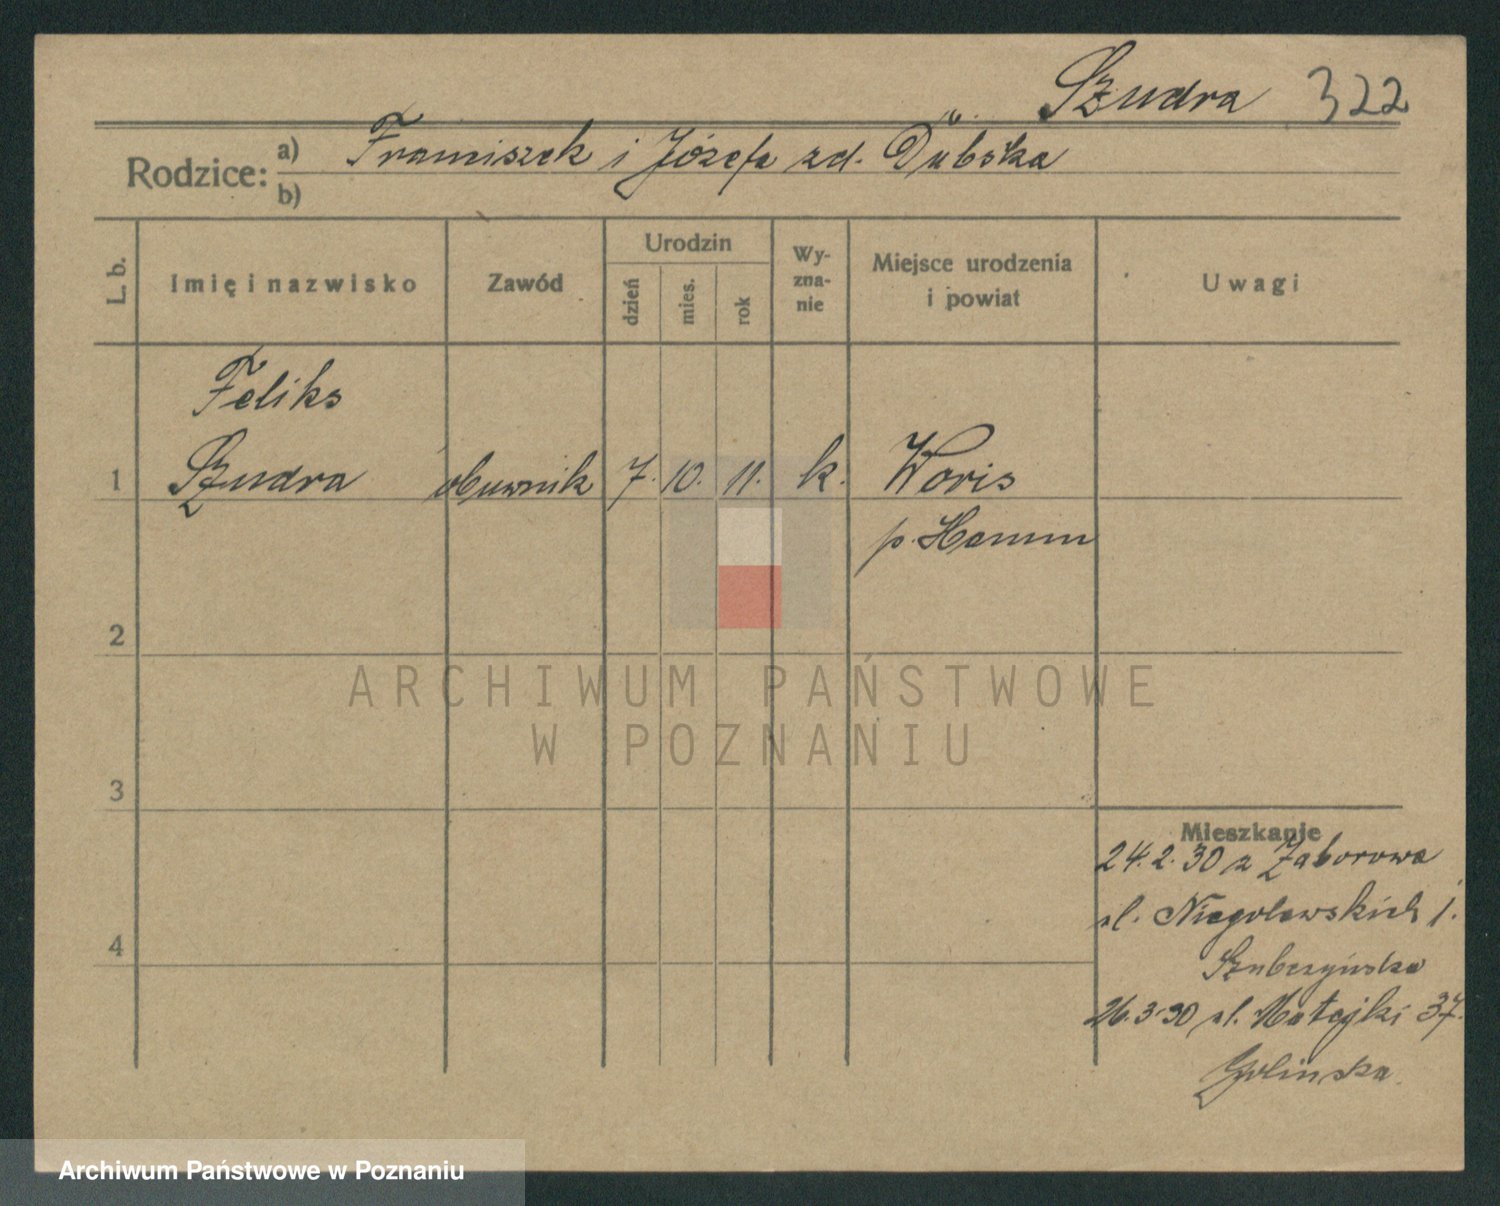 Szudra 322
Rodzice: a) Franciszek i Józefa zd. Dubska
b)
L. b. Imię i nazwisko Zawód Urodzin dzień mies. rok Wyznanie Miejsce urodzenia i powiat Uwagi
Feliks
1 Szudra obuwnik 7. 10. 11. k. Woris
p. Hamm
2
ARCHIWUM PAŃSTWOWE
W POZNANIU
3
Mieszkanie
24.2.30 z Zaborowa
ul. Niegolewskich 1.
4
Szubczyńska
26.3.30 ul. Matejki 37.
Golinska
Archiwum Państwowe w Poznaniu